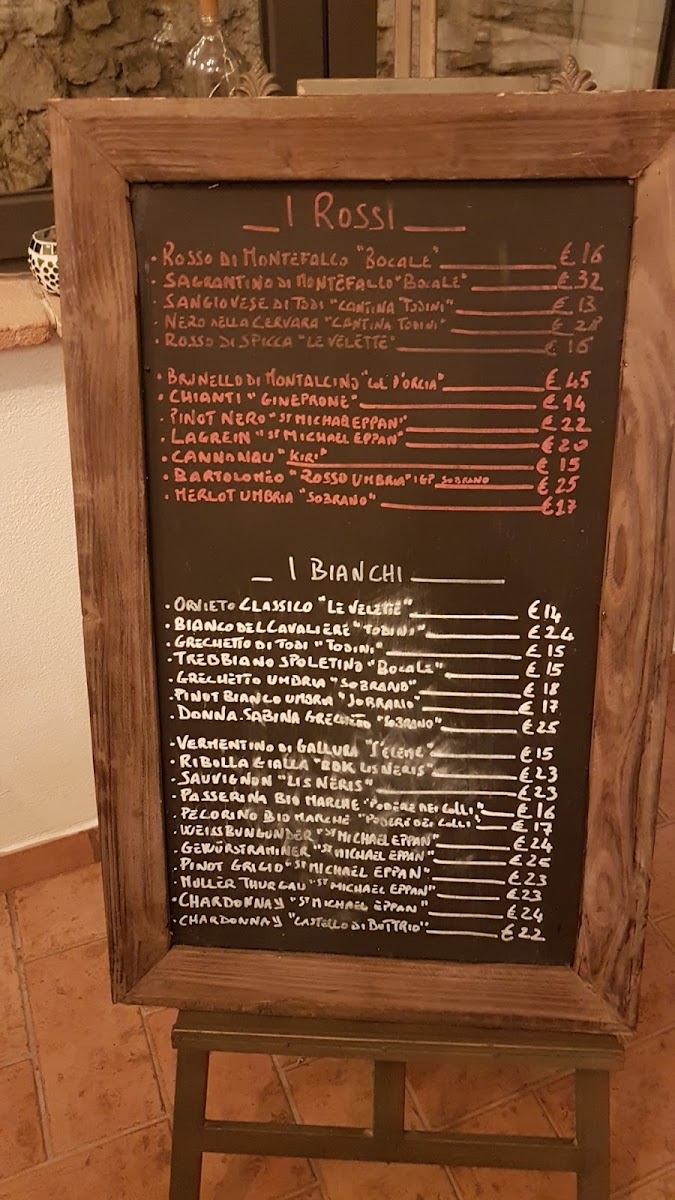 I ROSSI
• ROSSO DI MONTEFALCO "BOCALE" € 16
• SAGRANTINO DI MONTEFALCO "BOCALE" € 32
• SANGIOVESE DI TODI "CANTINA TODINI" € 13
• NERO DELLA CERVARA "CANTINA TODINI" € 28
• ROSSO DI SPICCA "LE VELETTE" € 16
• BRUNELLO DI MONTALCINO "COL D'ORCIA" € 45
• CHIANTI "GINEPRONE" € 14
• PINOT NERO "ST MICHAEL EPPAN" € 22
• LAGREIN "ST MICHAEL EPPAN" € 20
• CANNONAU "KIRI" € 15
• BARTOLOMEO "ROSSO UMBRIA" IGP SOBRANO € 25
• MERLOT UMBRIA "SOBRANO" € 17
I BIANCHI
• ORVIETO CLASSICO "LE VELETTE" € 14
• BIANCO DEL CAVALIERE "TODINI" € 24
• GRECHETTO DI TODI "TODINI" € 15
• TREBBIANO SPOLETINO "BOCALE" € 15
• GRECHETTO UMBRIA "SOBRANO" € 18
• PINOT BIANCO UMBRIA "SOBRANO" € 17
• DONNA SABINA GRECHETTO "SOBRANO" € 25
• VERMENTINO DI GALLURA € 15
• RIBOLLA GIALLA "RDK LIS NERIS" € 23
• SAUVIGNON "LIS NERIS" € 23
• PASSERINA BIO MARCHE "PODERE DEI COLLI" € 16
• PECORINO BIO MARCHE "PODERE DEI COLLI" € 17
• WEISSBUNGUNDER "ST MICHAEL EPPAN" € 24
• GEWÜRSTRAMINER "ST MICHAEL EPPAN" € 25
• PINOT GRIGIO "ST MICHAEL EPPAN" € 23
• MÜLLER THURGAU "ST MICHAEL EPPAN" € 23
• CHARDONNAY "ST MICHAEL EPPAN" € 24
• CHARDONNAY "CASTELLO DI BUTTRIO" € 22